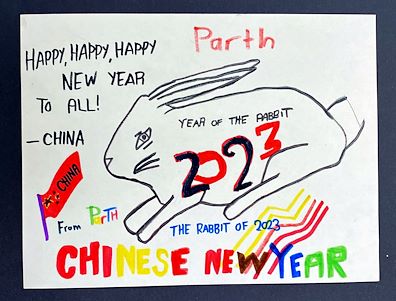 Parth
HAPPY, HAPPY, HAPPY
NEW YEAR
TO ALL!
— CHINA
YEAR OF THE RABBIT
2023
CHINA
From ParTH
THE RABBIT OF 2023
CHINESE NEW YEAR